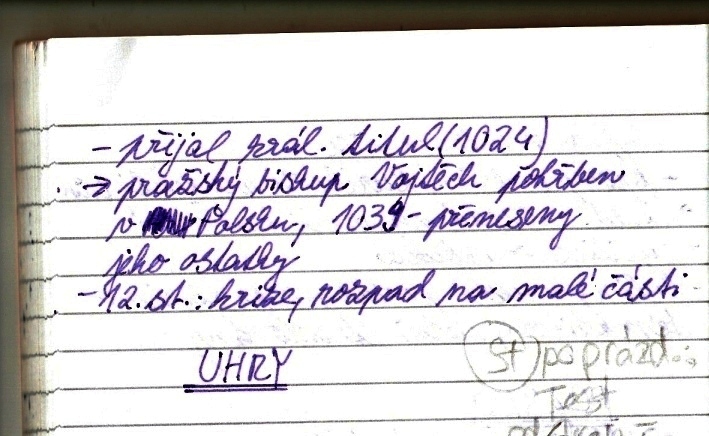 - přijal král. titul (1024)
→ pražský biskup Vojtěch pohřben
v Polsku, 1039 - přeneseny
jeho ostatky
- 12. st.: krize, rozpad na malé části
UHRY
St po prázd.:
Test
od